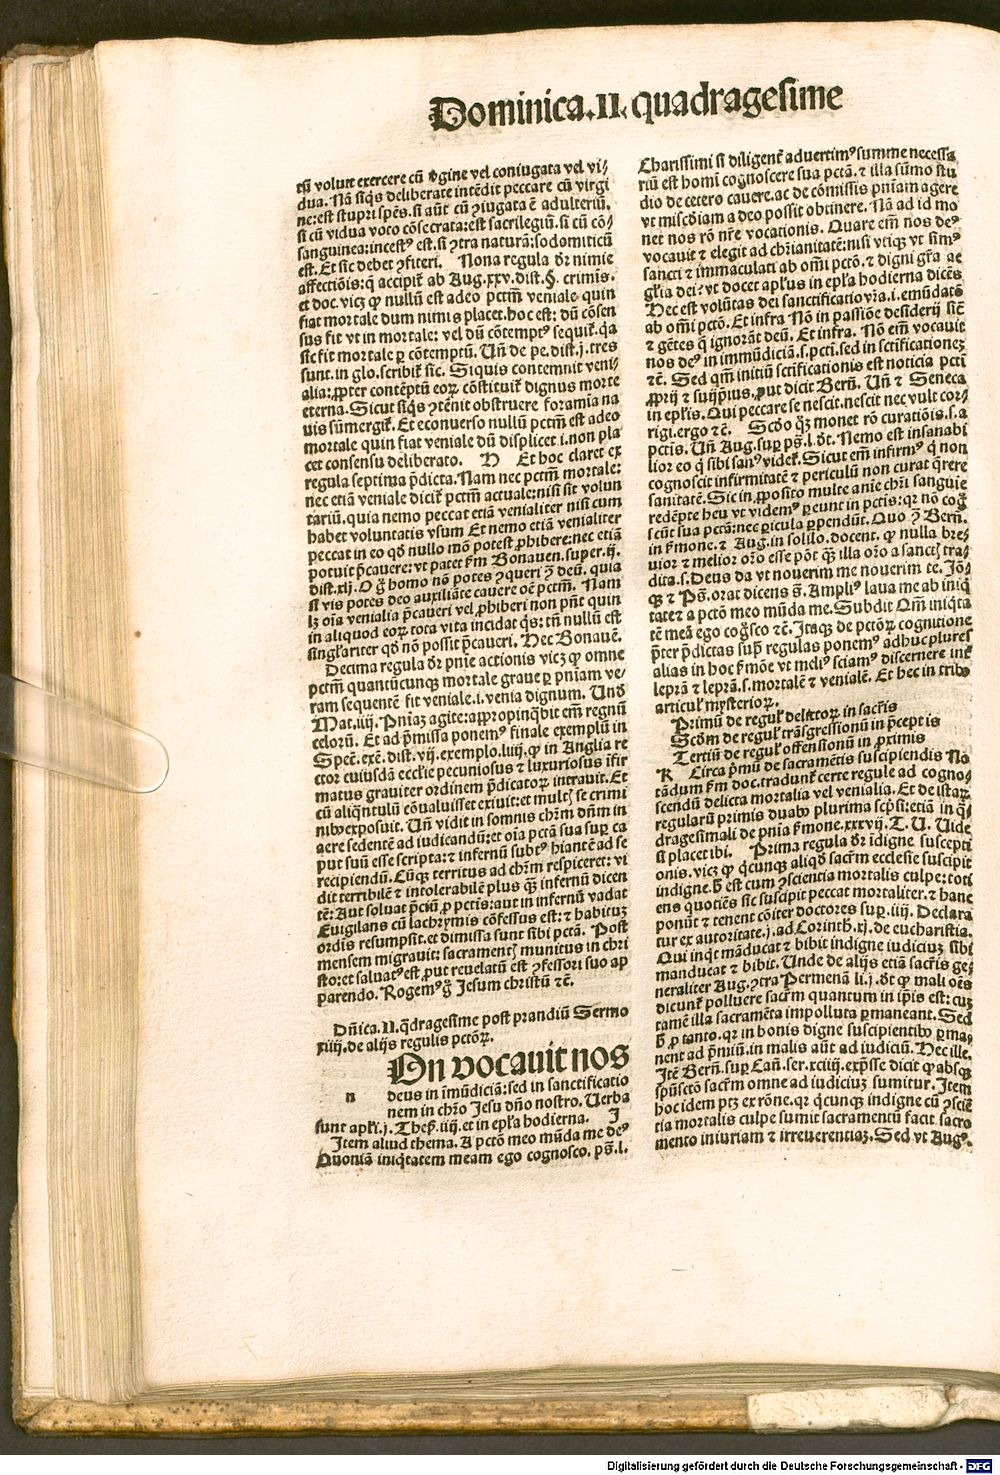 Dominica.II.quadragesime
tū voluit exercere cū ꝟgine vel coniugata vel vi/
dua. Nā siq̄s deliberate intēdit peccare cū virgi
ne: est stupri spēs. si aūt cū ꝯiugata ē adulteriū.
si cū vidua voto cōsecrata: est sacrilegiū. si cū cō/
sanguinea: incestꝰ est. si ꝯtra naturā: sodomiticū
est. Et sic debet ꝯfiteri. Nona regula dr̄ nimie
affectiōis: q̄ accipit̄ ab Aug. xxv. dist. §. crimīs.
et doc. vicꝫ ꝙ nullū est adeo pctm̄ veniale quin
fiat mortale dum nimis placet. hoc est: dū cōsen
sus fit vt in mortale: vel dū cōtemptꝰ sequit̄. q̄a
sic fit mortale ꝑ cōtemptū. Vn̄ de pe. dist. j. tres
sunt. in glo. scribit̄ sic. Siquis contemnit veni/
alia: ꝓpter contēptū eoꝝ cōstituit̄ dignus morte
eterna. Sicut siq̄s ꝯtēnit obstruere foramīa na
uis sūmergit̄. Et econuerso nullū pctm̄ est adeo
mortale quin fiat veniale dū displicet .i. non pla
cet consensu deliberato. H Et hoc claret ex
regula septima p̄dicta. Nam nec pctm̄ mortale:
nec etiā veniale dicit̄ pctm̄ actuale: nisi sit volun
tariū. quia nemo peccat etiā venialiter nisi cum
habet voluntatis vsum Et nemo etiā venialiter
peccat in eo qd̄ nullo mō potest ꝓhibere: nec etiā
potuit p̄cauere: vt patet ẜm Bonauen. super .ij.
dist. xlj. O g̊ homo nō potes ꝯqueri ꝯ deū. quia
si vis potes deo auxiliāte cauere oē pctm̄. Nam
lꝫ oīa venialia p̄caueri vel ꝓhiberi non pn̄t quin
in aliquod eoꝝ tota vita incidat q̄s: tn̄ nullū est
singlariter qd̄ nō possit p̄caueri. Hec Bonauē.
Decima regula dr̄ pn̄ie actionis vicꝫ ꝙ omne
pctm̄ quantūcunqꝫ mortale graue ꝑ pn̄iam ve/
ram sequentē fit veniale .i. venia dignum. Vnd̄
Mat. iiij. Pn̄iaꝫ agite: appropinq̄bit em̄ regnū
celorū. Et ad p̄missa ponemꝰ finale exemplū in
Spec̄. exē. dist. vij. exemplo. liiij. ꝙ in Anglia re
ctor cuiusdā ecclīe pecuniosus ⁊ luxuriosus īfir
matus grauiter ordinem p̄dicatoꝝ intrauit. Et
cū aliq̄ntulū cōualuisset exiuit: et multꝭ se crimi
nibꝰ exposuit. Vn̄ vidit in somnis chr̄m dn̄m in
aere sedentē ad iudicandū: et oīa pctā sua suꝑ ca
put suū esse scripta: ⁊ infernū subtꝰ hiantē ad se
recipiendū. Cūqꝫ territus ad chr̄m respiceret: vi
dit terribilē ⁊ intolerabilē plus q̄ꝫ infernū dicen
tē: Aut soluat p̄ciū ꝓ pctis: aut in infernū vadat
Euigilans cū lachrymis cōfessus est: ⁊ habituꝫ
ordīs resumpsit. et dimissa sunt sibi pctā. Post
mensem migrauit: sacramentꝭ munitus in chri
sto: et saluatꝰ est ꝓut reuelatū est ꝯfessori suo ap
parendo. Rogemꝰ g̊ Jesum christū ⁊c̄.
Dn̄ica. II. q̄dragesime post prandiū Sermo
xiiij. de alijs regulis pctōꝝ.
On vocauit nos
n deus in īmūdiciā: sed in sanctificatio
nem in chr̄o Jesu dn̄o nostro. Verba
sunt apl̄i. j. Theſ. iiij. et in epl̄a hodierna. I
Item aliud thema. A pctō meo mūda me deꝰ
Quoniā iniq̄tatem meam ego cognosco. pṡ. l.
Charissimi si diligent̄ aduertimꝰ summe necessa
riū est homī cognoscere sua pctā. ⁊ illa sūmo stu
dio de cetero cauere. ac de cōmissis pn̄iam agere
vt miscd̄iam a deo possit obtinere. Nā ad id mo
net nos rō nr̄e vocationis. Quare em̄ nos deꝰ
vocauit ⁊ elegit ad chr̄ianitatē: nisi vtiqꝫ vt simꝰ
sancti ⁊ immaculati ab omī pctō. ⁊ digni gr̄a ac
gl̄ia dei? vt docet apl̄us in epl̄a hodierna dicēs
Hec est volūtas dei sanctificatio vr̄a .i. emūdatō
ab omī pctō. Et infra Nō in passiōe desiderij sic̄
⁊ gētes q̄ ignorāt deū. Et infra. Nō em̄ vocauit
nos deꝰ in immūdiciā. s. pcti. sed in sctificationeꝫ
⁊c̄. Sed qm̄ initiū sctificationis est noticia pcti
ꝓprij ⁊ suijpsius. ꝓut dicit Bern̄. Vn̄ ⁊ Seneca
in epl̄is. Qui peccare se nescit. nescit nec vult cor/
rigi. ergo ⁊c̄. Scd̄o q̄ꝫ monet rō curatiōis. s. a
pctis. Vn̄ Aug. suꝑ pṡ. l. dt̄. Nemo est insanabi
lior eo q̄ sibi sanꝰ videt̄. Sicut em̄ infirmꝰ q̄ non
cognoscit infirmitatē ⁊ periculū non curat q̄rere
sanitatē. Sic in ꝓposito multe anīe chr̄i sanguīe
redēpte heu vt videmꝰ ꝑeunt in pctis: qꝛ nō cog̊
scūt sua pctā: nec ꝑicula ꝑpendūt. Quo ꝯ Bern̄.
in ẜmone. ⁊ Aug. in solilo. docent. ꝙ nulla bre/
uior ⁊ melior or̄o esse pōt q̄ꝫ illa or̄o a sanctꝭ tra/
dita. s. Deus da vt nouerim me nouerim te. Jō/
qꝫ ⁊ Pṡ. orat dicens ṡ. Ampliꝰ laua me ab iniq̄
tate: ⁊ a pctō meo mūda me. Subdit Qm̄ iniq̄ta
tē meā ego cog̊sco ⁊c̄. Itaqꝫ de pctōꝝ cognitione
p̄ter p̄dictas sup̄ regulas ponemꝰ adhuc plures
alias in hoc ẜmōe vt meliꝰ sciamꝰ discernere int̄
leprā ⁊ leprā. s. mortalē ⁊ venialē. Et hec in tribꝰ
articul̄ mysterioꝝ.
Primū de regul̄ delictoꝝ in sacr̄is
Scd̄m de regul̄ trāsgressionū in p̄ceptis
Tertiū de regul̄ offensionū in ꝓximis
K Circa p̄mū de sacramētis suscipiendis No
tādum ẜm doc. tradunt̄ certe regule ad cogno/
scendū delicta mortalia vel venialia. Et de istaꝝ
regularū primis duabꝰ plurima scp̄si: etiā in q̄/
dragesimali de pn̄ia ẜmone. xxxvij. T. V. Uide
si placet ibi. Prima regula dr̄ īdigne suscepti
onis. vicꝫ ꝙ q̄cunqꝫ aliqd̄ sacr̄m ecclesie suscipit
indigne. ħ est cum ꝯscientia mortalis culpe: toti
ens quotiēs sic suscipit peccat mortaliter. ⁊ hanc
ponūt ⁊ tenent cōiter doctores suꝑ. iiij. Declara
tur ex autoritate. j. ad Corinth. xj. de eucharistia.
Qui inq̄t māducat ⁊ bibit indigne iudiciuꝫ sibi
manducat ⁊ bibit. Unde de alijs etiā sacr̄is ge/
neraliter Aug. ꝯtra Permenā li. j. dt̄ ꝙ mali oēs
dicunt̄ polluere sacr̄m quantum in ip̄is est: cuꝫ
tamē illa sacramēta impolluta ꝑmaneant. Sed
ħ ꝓ tanto. qꝛ in bonis digne suscipientibꝰ ꝑma/
nent ad p̄miū. in malis aūt ad iudiciū. Hec ille.
Itē Bern̄. suꝑ Can̄. ser. xciij. exp̄sse dicit ꝙ absqꝫ
spūsctō sacr̄m omne ad iudiciuꝫ sumitur. Item
hoc idem ptꝫ ex rōne. qꝛ q̄cunqꝫ indigne cū ꝯsciē
tia mortalis culpe sumit sacramentū facit sacra
mento iniuriam ⁊ irreuerentiaꝫ. Sed vt Augꝰ.
Digitalisierung gefördert durch die Deutsche Forschungsgemeinschaft - DFG